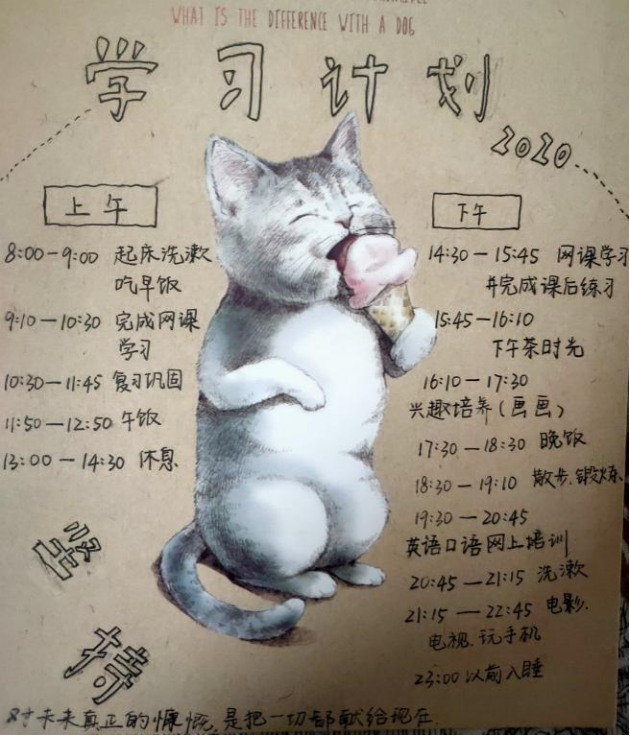 WHAT IS THE DIFFERENCE WITH A DOG
学习计划
2020
上午
8:00-9:00 起床洗漱
吃早饭
9:10-10:30 完成网课
学习
10:30-11:45 复习巩固
11:50-12:50 午饭
13:00-14:30 休息
下午
14:30-15:45 网课学习
并完成课后练习
15:45-16:10
下午茶时光
16:10-17:30
兴趣培养(画画)
17:30-18:30 晚饭
18:30-19:10 散步.锻炼
19:30-20:45
英语口语网上培训
20:45-21:15 洗漱
21:15-22:45 电影.
电视.玩手机
23:00以前入睡
坚
持
对未来真正的慷慨,是把一切都献给现在.